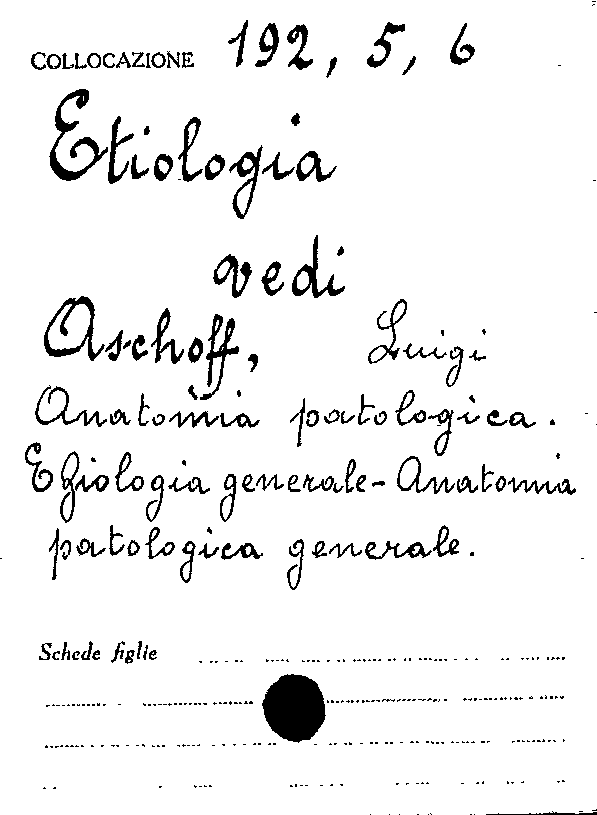 COLLOCAZIONE 192, 5, 6
Etiologia
vedi
Aschoff, Luigi
Anatomia patologica.
Eziologia generale - Anatomia
patologica generale.
Schede figlie